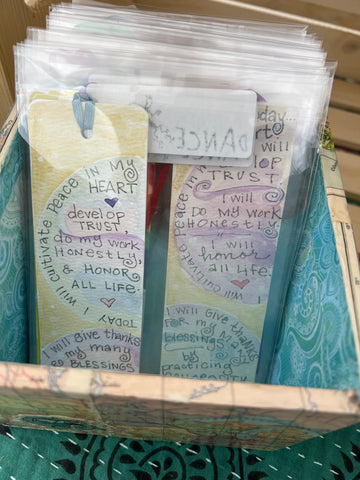 DANCE
I will cultivate Peace IN MY HEART
develop TRUST,
do my work
Honestly,
& HONOR
ALL LIFE.
TODAY
I will Give thanks
my many
BLESSINGS
today...
I will
TRUST
I will
DO MY WORK
HONESTLY
I will
honor
all life.
I will cultivate peace in
I will Give thanks
FOR my
blessings
by
practicing